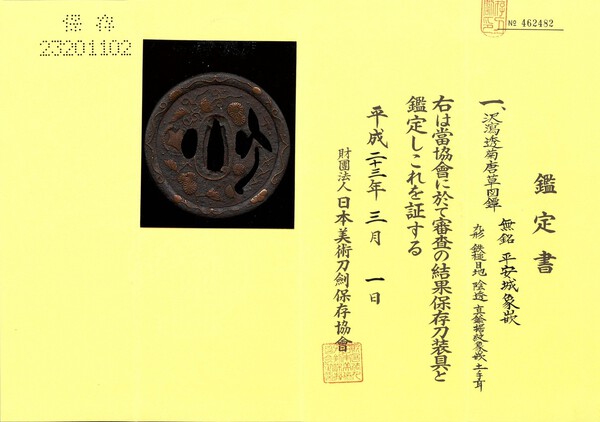 保存
23201102
№ 462482
鑑定書
一、沢瀉透菊唐草図鐔
無銘 平安城象嵌
丸形 鉄槌目地 陰透 真鍮据紋象嵌 土手耳
右は當協會に於て審査の結果保存刀装具と
鑑定しこれを証する
平成二十三年三月一日
財團法人 日本美術刀剣保存協會